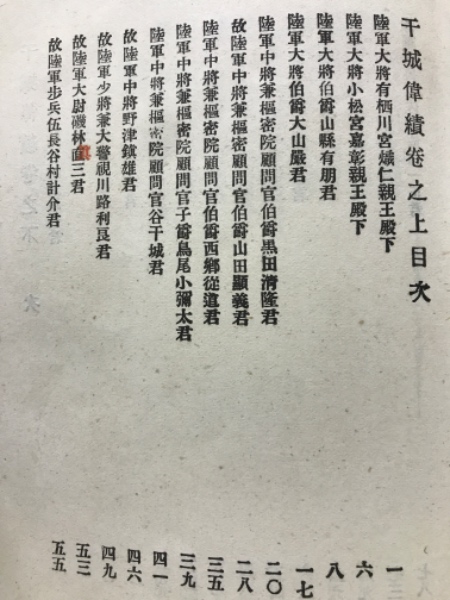 干城偉績卷之上目次
陸軍大將有栖川宮熾仁親王殿下 一
陸軍大將小松宮嘉彰親王殿下 六
陸軍大將伯爵山縣有朋君 八
陸軍大將伯爵大山嚴君 一七
陸軍中將兼樞密院顧問官伯爵黑田清隆君 二〇
故陸軍中將兼樞密院顧問官伯爵山田顯義君 二八
陸軍中將兼樞密院顧問官伯爵西鄕從道君 三五
陸軍中將兼樞密院顧問官子爵鳥尾小彌太君 三九
陸軍中將兼樞密院顧問官谷干城君 四一
故陸軍中將野津鎭雄君 四六
故陸軍少將兼大警視川路利良君 四九
故陸軍大尉磯林直三君 五三
故陸軍步兵伍長谷村計介君 五五